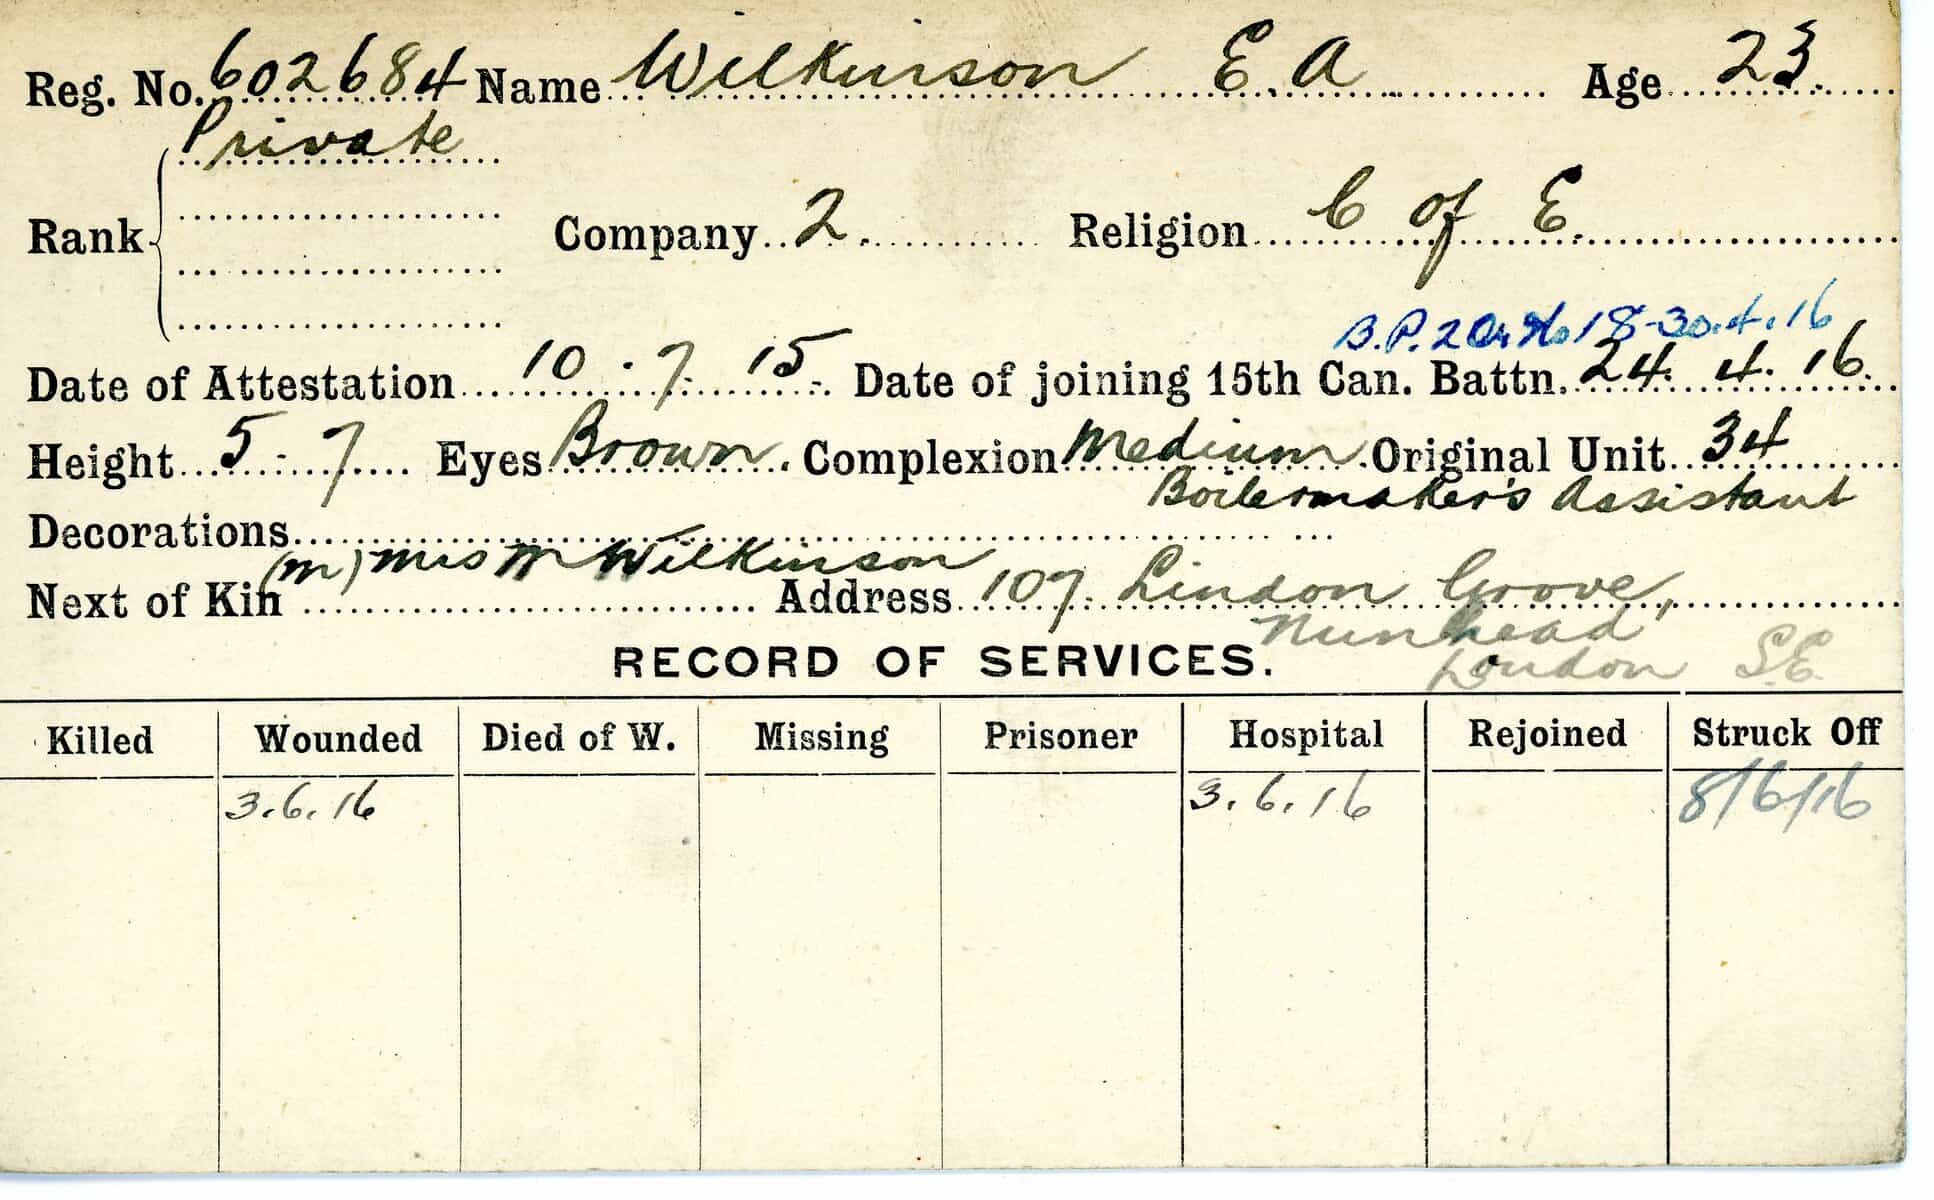 Reg. No. 602684 Name Wilkinson E. A Age 23.
Private
Rank Company 2. Religion C of E.
B.P. 2 Or No 18-30.4.16
Date of Attestation 10.7.15 Date of joining 15th Can. Battn. 24.4.16.
Height 5-7 Eyes Brown Complexion Medium Original Unit 34
Boilermaker's Assistant
Decorations
(m) Mrs M Wilkinson
Next of Kin Address 107 Lindon Grove,
Nunhead,
RECORD OF SERVICES.
London S.E.
Killed Wounded Died of W. Missing Prisoner Hospital Rejoined Struck Off
3.6.16 3.6.16 8/6/16